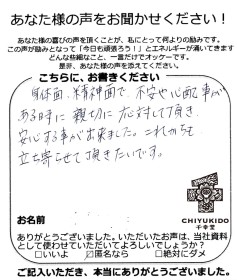 あなた様の声をお聞かせください!
あなた様の喜びの声を頂くことが、私にとって何よりの励みです。
この声が励みとなって「今日も頑張ろう!」とエネルギーが湧いてきます
どんな些細なこと、一言だけでオッケーです。
是非、あなた様の声を添えてください。
こちらに、お書きください
身体面、精神面で 不安や心配事が
ある時に 親切に 応対して頂き
安心する事が出来ました。これからも
立ち寄らせて頂きたいです。
お名前
CHIYUKIDO
千幸堂
ありがとうございました。いただいたお声は、当社資料
として使わせていただいてよろしいでしょうか?
□いいよ ☑匿名なら □絶対にダメ
ご記入いただき、本当にありがとうございました。